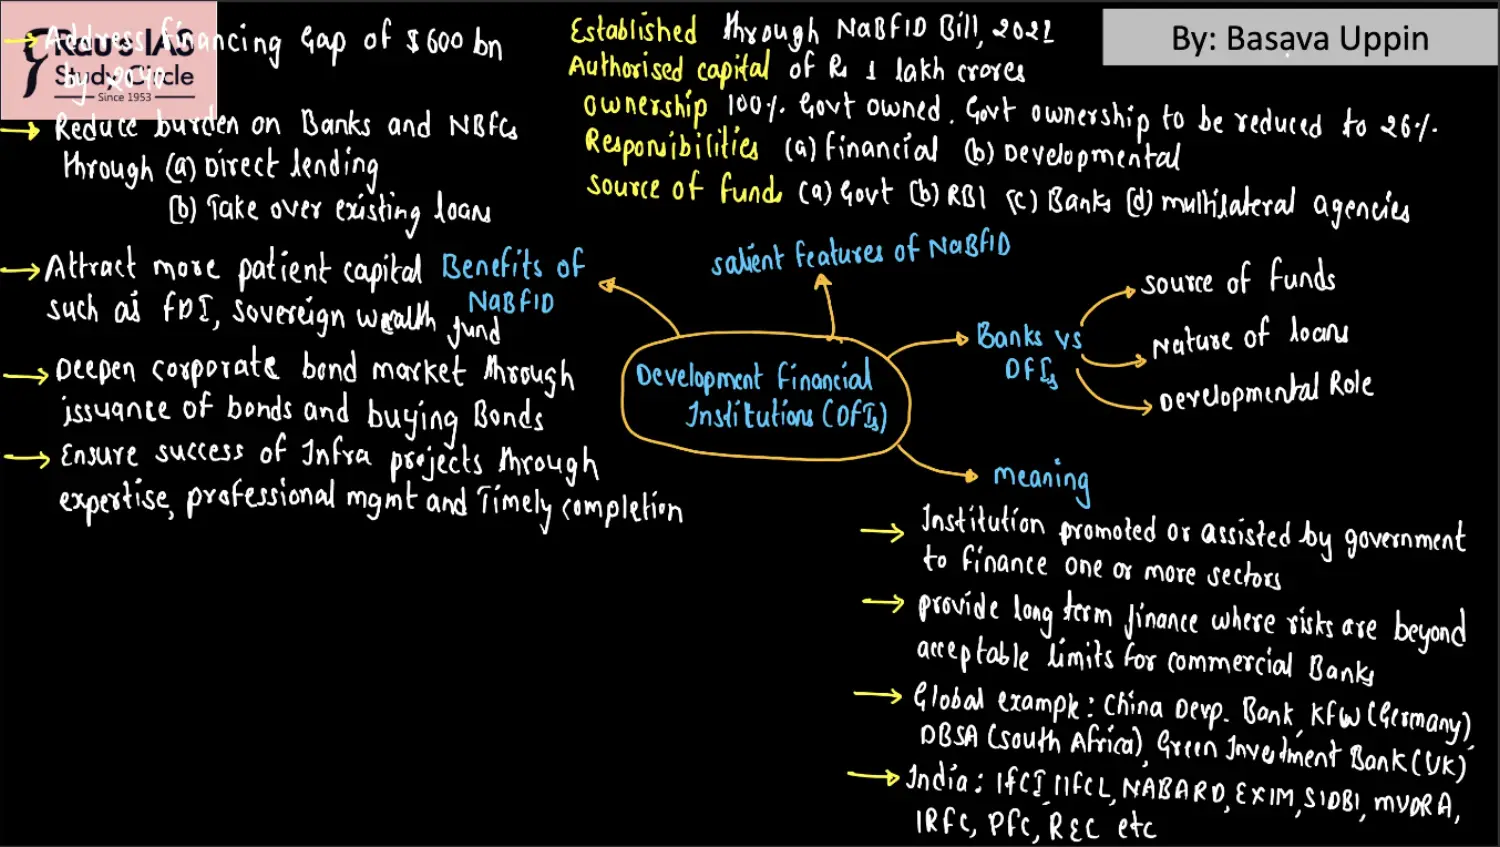 Address financing Gap of $600 bn
by 2040
Rau's IAS
Study Circle
Since 1953
→ Reduce burden on Banks and NBFCs
through (a) Direct lending
(b) Take over existing loans
→ Attract more patient capital
such as FDI, sovereign wealth fund
→ Deepen corporate bond market through
issuance of bonds and buying Bonds
→ Ensure success of Infra projects through
expertise, professional mgmt and Timely completion
Benefits of
NaBFID
Established through NaBFID Bill, 2021
Authorised capital of Rs 1 lakh crores
ownership 100% Govt owned. Govt ownership to be reduced to 26%.
Responsibilities (a) Financial (b) Developmental
source of funds (a) Govt (b) RBI (c) Banks (d) multilateral agencies
By: Basava Uppin
salient features of NaBFID
Development Financial
Institutions (DFIs)
Banks vs
DFIs
source of funds
Nature of loans
Developmental Role
meaning
→ Institution promoted or assisted by government
to finance one or more sectors
→ provide long term finance where risks are beyond
acceptable limits for commercial Banks
→ Global example: China Devp. Bank, KFW (Germany),
DBSA (South Africa), Green Investment Bank (UK)
→ India: IFCI, IIFCL, NABARD, EXIM, SIDBI, MUDRA,
IRFC, PFC, REC etc